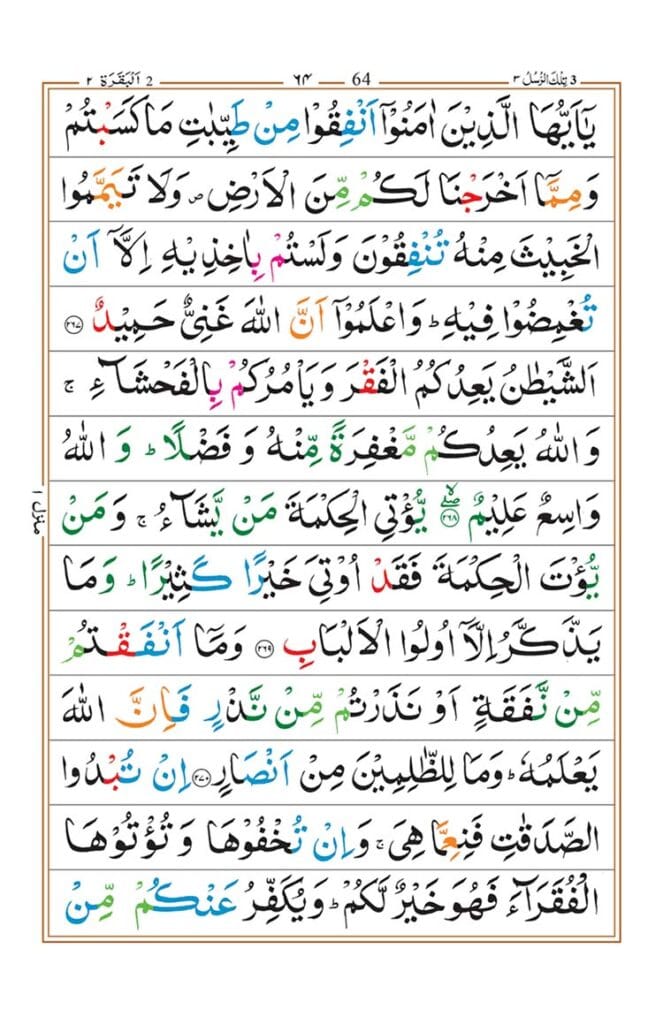 ٣ تِلْكَ الرُّسُلُ 3 64 ٦٤ 2 اَلْبَقَرَة ٢
يٰۤاَيُّهَا الَّذِيْنَ اٰمَنُوْۤا اَنْفِقُوْا مِنْ طَيِّبٰتِ مَا كَسَبْتُمْ
وَمِمَّاۤ اَخْرَجْنَا لَكُمْ مِّنَ الْاَرْضِ ص وَلَا تَيَمَّمُوا
الْخَبِيْثَ مِنْهُ تُنْفِقُوْنَ وَلَسْتُمْ بِاٰخِذِيْهِ اِلَّاۤ اَنْ
تُغْمِضُوْا فِيْهِ ط وَاعْلَمُوْۤا اَنَّ اللّٰهَ غَنِيٌّ حَمِيْدٌ ٢٦٧
اَلشَّيْطٰنُ يَعِدُكُمُ الْفَقْرَ وَيَاْمُرُكُمْ بِالْفَحْشَآءِ ج
وَاللّٰهُ يَعِدُكُمْ مَّغْفِرَةً مِّنْهُ وَفَضْلًا ط وَاللّٰهُ
وَاسِعٌ عَلِيْمٌ ٢٦٨ يُّؤْتِي الْحِكْمَةَ مَنْ يَّشَآءُ ج وَمَنْ
يُّؤْتَ الْحِكْمَةَ فَقَدْ اُوْتِيَ خَيْرًا كَثِيْرًا ط وَمَا
يَذَّكَّرُ اِلَّاۤ اُولُوا الْاَلْبَابِ ٢٦٩ وَمَاۤ اَنْفَقْتُمْ
مِّنْ نَّفَقَةٍ اَوْ نَذَرْتُمْ مِّنْ نَّذْرٍ فَاِنَّ اللّٰهَ
يَعْلَمُهٗ ط وَمَا لِلظّٰلِمِيْنَ مِنْ اَنْصَارٍ ٢٧٠ اِنْ تُبْدُوا
الصَّدَقٰتِ فَنِعِمَّا هِيَ ج وَاِنْ تُخْفُوْهَا وَتُؤْتُوْهَا
الْفُقَرَآءَ فَهُوَ خَيْرٌ لَّكُمْ ط وَيُكَفِّرُ عَنْكُمْ مِّنْ
منزل ١